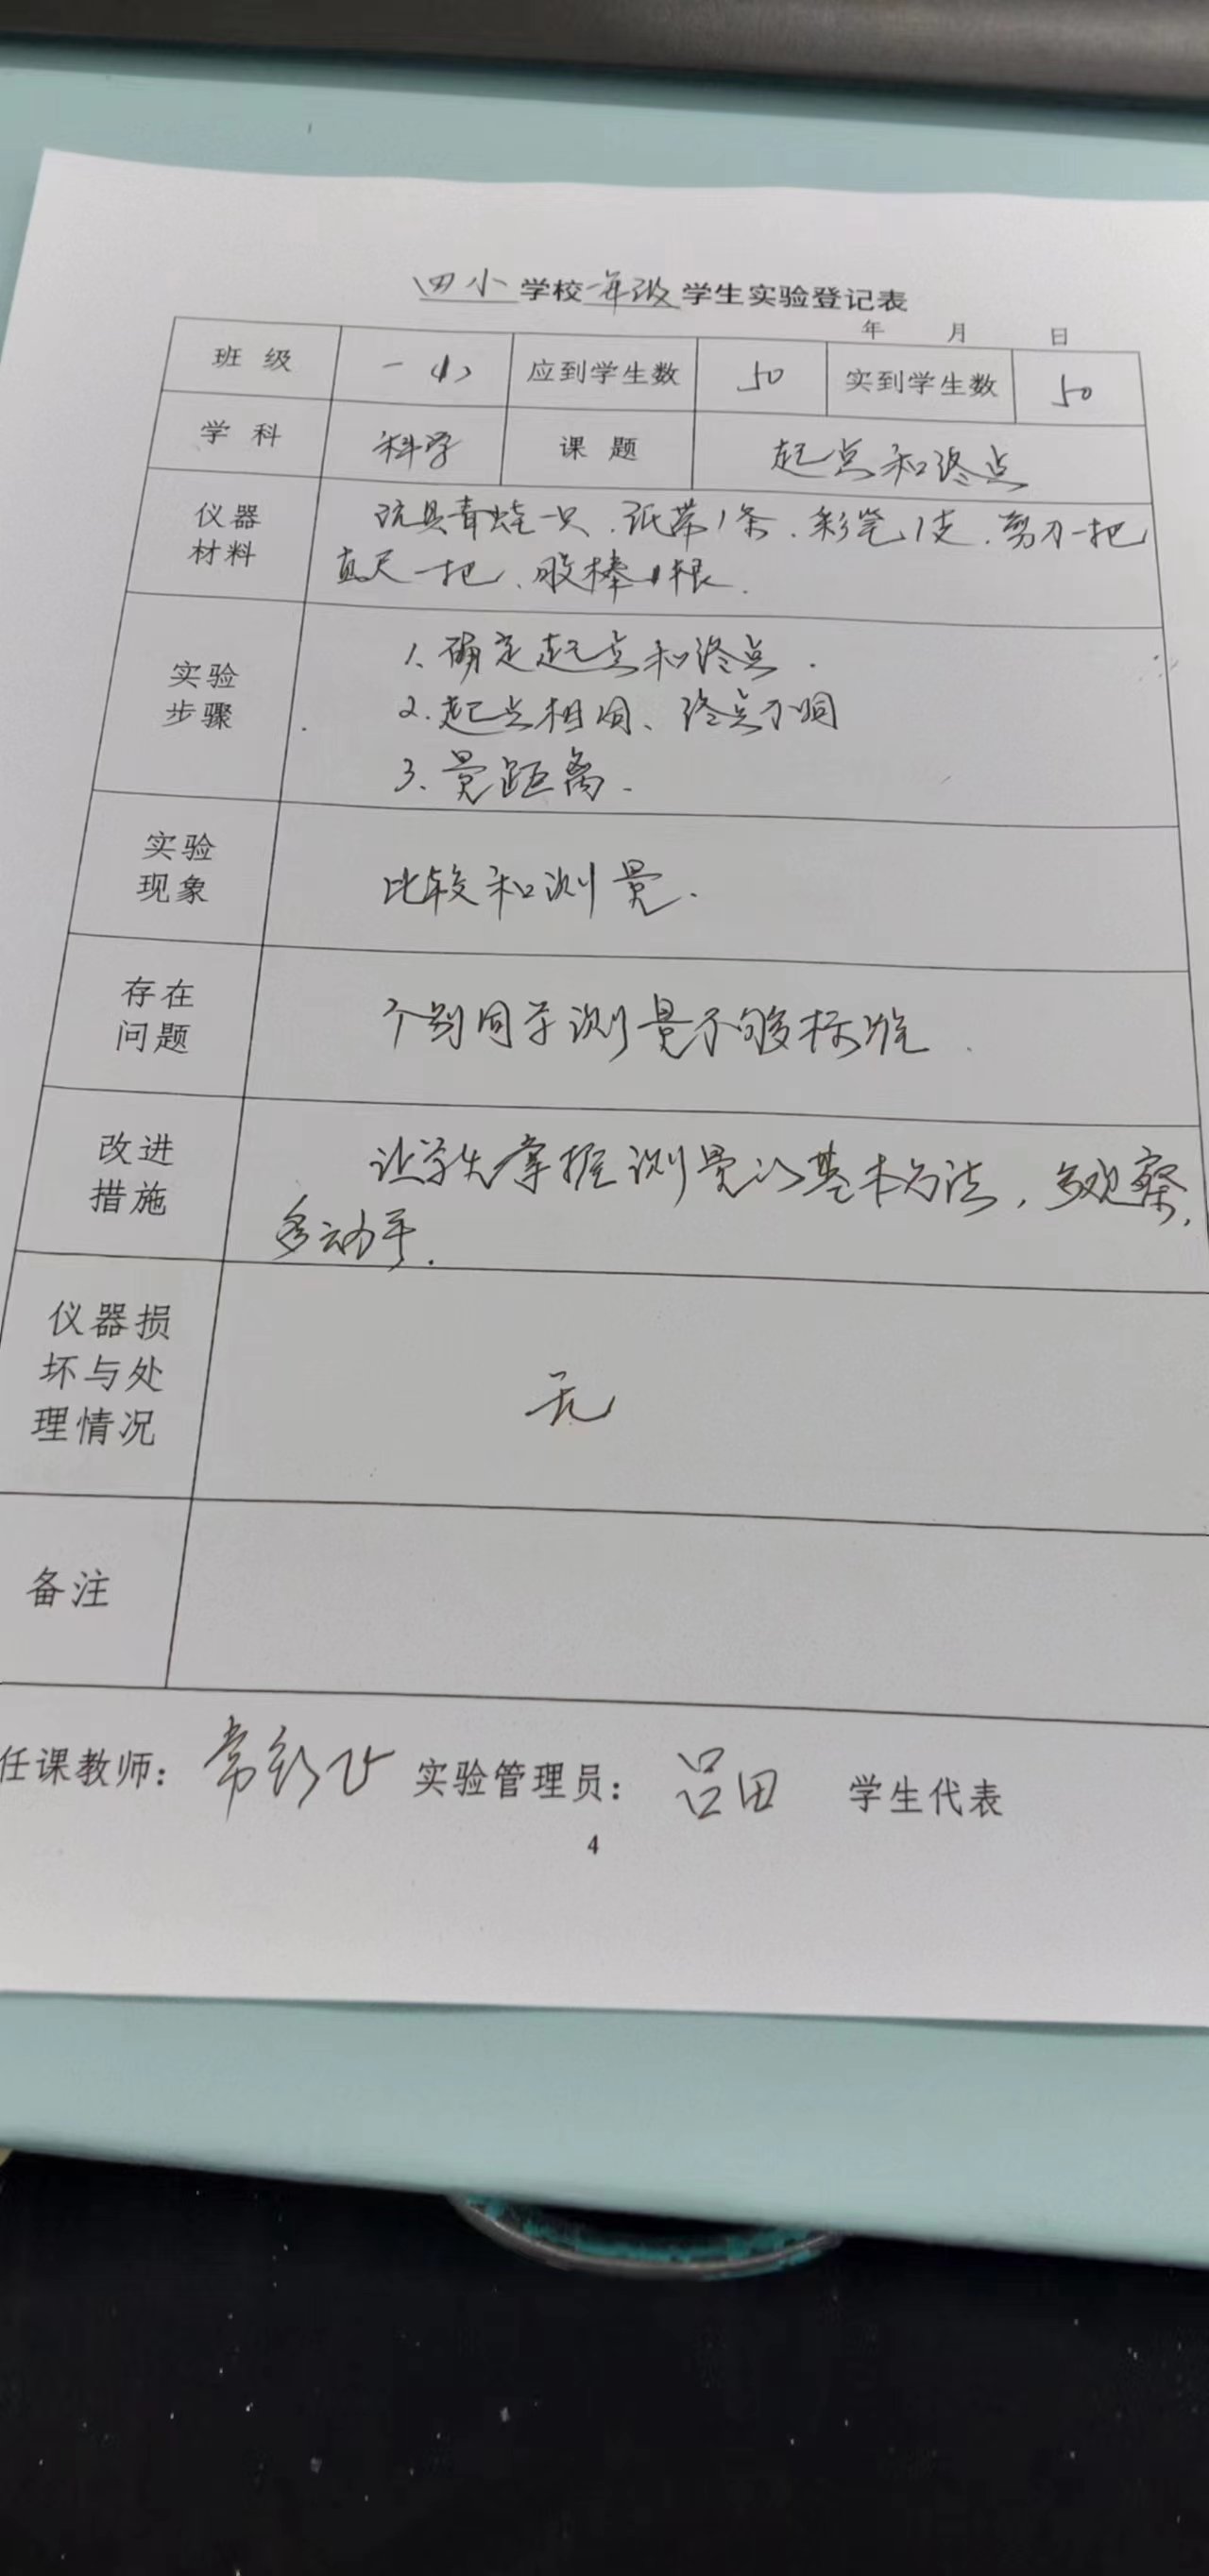 四小学校一年级学生实验登记表
年 月 日
班级 一(1) 应到学生数 50 实到学生数 50
学科 科学 课题 起点和终点
仪器材料 玩具青蛙一只、纸带1条、彩笔1支、剪刀一把
直尺一把、胶棒1根.
实验步骤 1、确定起点和终点.
2.起点相同、终点不同
3、量距离.
实验现象 比较和测量.
存在问题 个别同学测量不够标准.
改进措施 让学生掌握测量的基本方法,多观察,
多动手.
仪器损坏与处理情况 无
备注
任课教师: 常 实验管理员: 吕田 学生代表
4